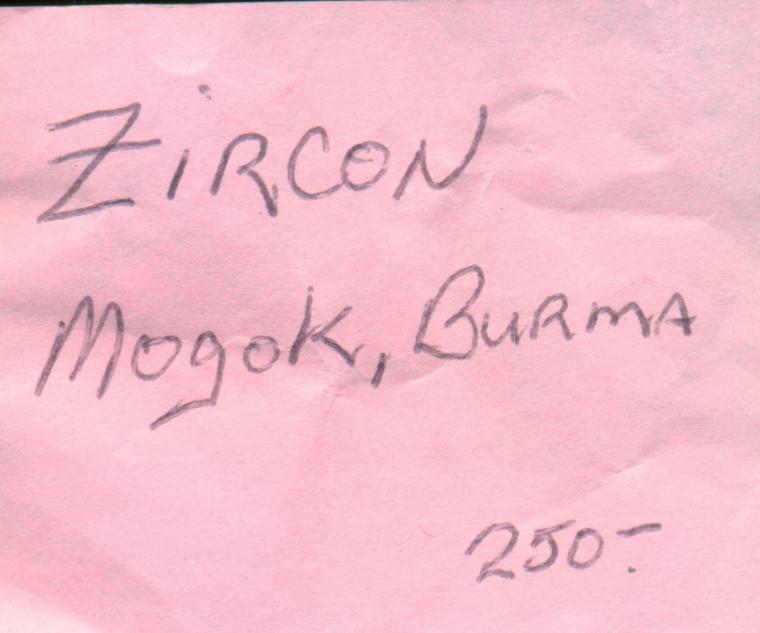 ZIRCON
Mogok, BURMA
250.-